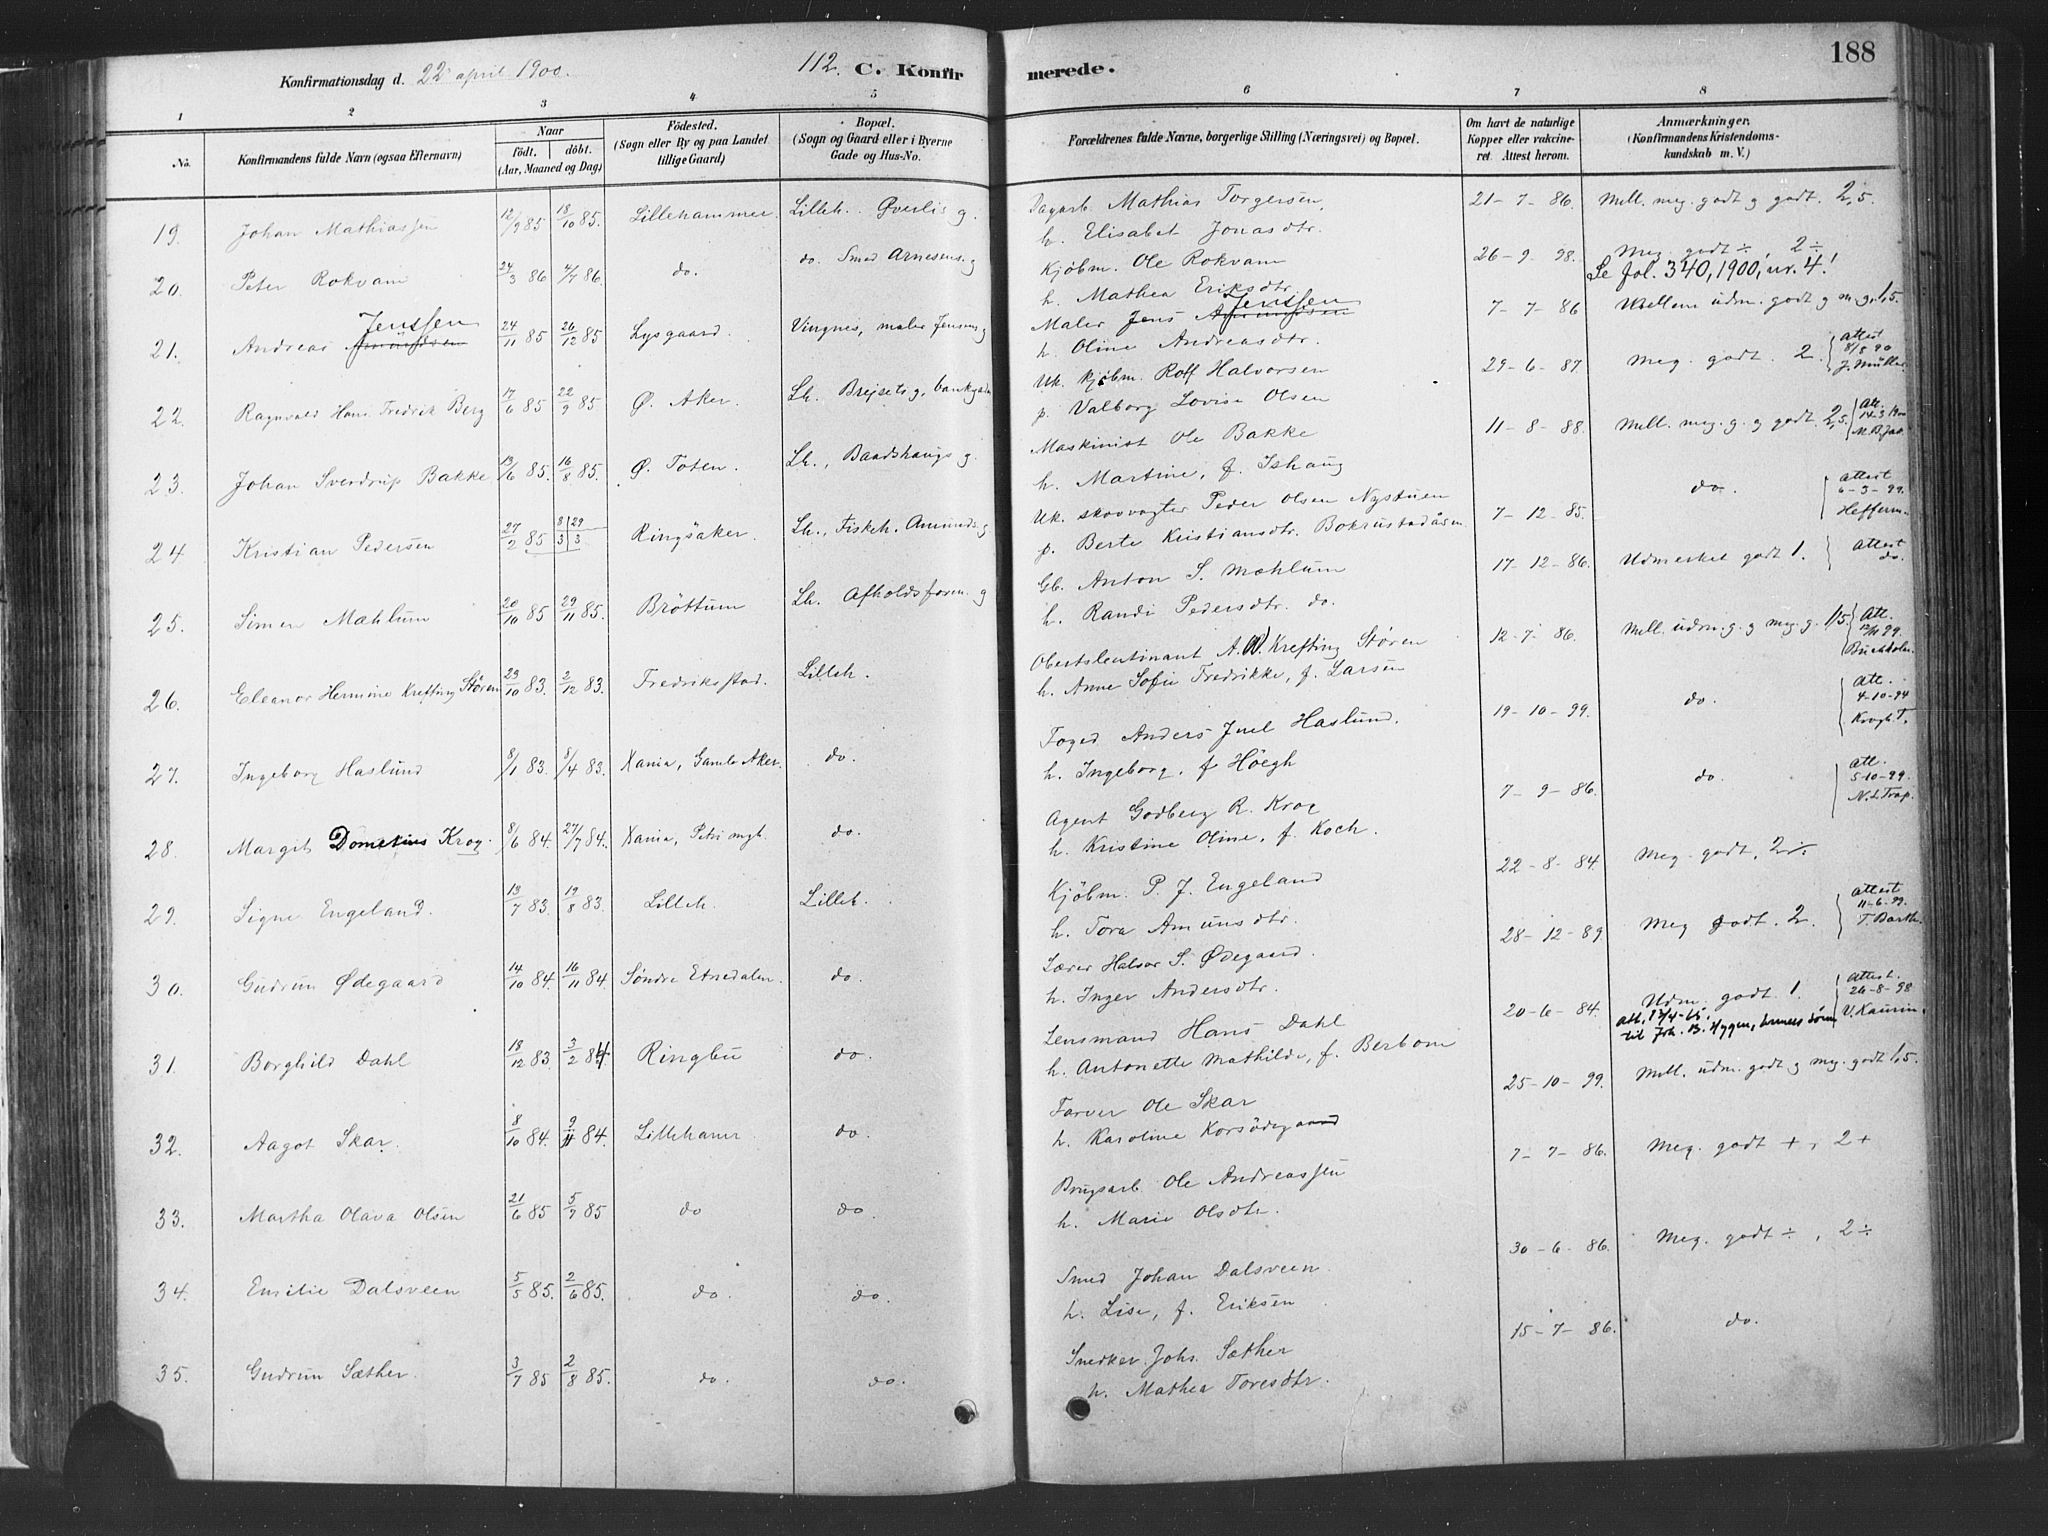 188
Konfirmationsdag d. 22 april 1900. 112. C. Konfirmerede.
1 2 3 4 5 6 7 8
No. Konfirmandens fulde Navn (ogsaa Efternavn) Naar födt. döbt. (Aar, Maaned og Dag) Födested. (Sogn eller By og paa Landet tillige Gaard) Bopæl. (Sogn og Gaard eller i Byerne Gade og Hus-No. Forældrenes fulde Navne, borgerlige Stilling (Næringsvei) og Bopæl. Om havt de naturlige Kopper eller vakcineret Attest herom. Anmærkninger. (Konfirmandens Kristendomskundskab m. V.)
19. Johan Mathiassen 12/9 85 18/10 85. Lillehammer. Lilleh. Øverlis g. Dagarb. Mathias Torgersen, 21-7-86. Mell. meg. godt g godt. 2,5.
h. Elisabet Jonasdtr.
20. Peter Rokvam 24/3 86 4/7 86. do. do. Smed Arnesens g Kjøbm. Ole Rokvam 26-9-98. Meg. godt ÷, 2 ÷
h. Mathea Eriksdtr. Se fol. 340, 1900, nr. 4!
21. Andreas Jenssen 24/11 85 26/12 85 Lysgaard. Vingnes, maler Jensens g Maler Jens Jenssen 7-7-86 Mellem udm. godt g m. g. 1,5.
h. Oline Andreasdtr.
22. Ragnvald Hans Fredrik Berg 17/6 85 22/9 85 Ø. Aker. Lh. Brejsets g, Uk. kjøbm. Rolf Halvorsen 29-6-87 Meg. godt. 2. attest 8/8 90 J. Müller
p. Valborg Lovise Olsen
23. Johan Sverdrup Bakke 13/6 85. 16/8 85. Ø. Toten. Lh., Baadshaugs g. Maskinist Ole Bakke 11-8-88. Mell. meg. g. g godt. 2,5. Att. 14-3 1900
h. Martine, f. Ishaug
24 Kristian Pedersen 27/2 85 8/3 29/3 Ringsaker. Lh., Fiskeh. Amunds. g Uk. skovvogter Peder Olsen Nystuen 7-12-85. do. attest 6-3-99. Hefferm.
p. Berte Kristiansdtr. Bokrustadåsen
25. Simen Mæhlum 20/10 85 29/11 85. Brøttum Lh. Afholdsforen. g Gb. Anton S. Mæhlum 17-12-86. Udmerket godt 1. attest do.
h. Randi Pedersdtr. do.
26. Eleanor Hermine Krefting Støren 29/10 83. 2/12 83. Fredriksstad. Lilleh. Oberstlentinant A. W. Krefting Støren 12-7-86. Mell. udm. g. g meg. g. 1,5 Att. 99. Buchholm.
h. Anne Sofie Fredrikke, f. Larsen
27. Ingeborg Haslund 8/1 83. 8/4 83. Xania, Gamle Aker. do. Foged Anders Juel Haslund. 19-10-99. do. att. 4-10-94 Krogh T.
h. Ingeborg, f Höegh
28. Margit Dometius Krog. 8/6 84. 27/7 84. Xania, Petri mgh. do. Agent Godberg R. Krog 7-9-86. do. att. 5-10-99. N. L. Trap.
h. Kristine Oline, f. Koch.
29. Signe Engeland. 13/7 83. 19/8 83. Lilleh. Lilleh. Kjöbm. P. J. Engeland 22-8-84. Meg. godt, 2 ÷
h. Tora Amunsdtr.
30. Gudrun Ødegaard 14/10 84. 16/11 84. Søndre Etnedalen. do. Lærer Halvor S. Ødegaard. 28-12-89. Meg godt. 2. attest 11-6-99. T. Barth.
h. Inger Andersdtr.
31. Borghild Dahl 18/12 83. 3/2 84 Ringbu do. Lensmand Hans Dahl 20-6-84. Udm. godt 1. attest. 26-8-98 V. Kaurin.
h. Antonette Mathilde, f. Berbom att. 13/4-65, til Joh. B. Hygen,
32. Aagot Skar. 8/10 84. 9/11 84. Lillehamer. do. Farver Ole Skar 25-10-99. Mell. udm. godt g meg. godt 1,5.
h. Karoline Korsödegaard
33. Martha Olava Olsen 21/6 85 5/9 85 do do. Brugsarb. Ole Andreassen 7-7-86. Meg. godt +, 2 +
h. Marie Olsdtr.
34. Emilie Dalsveen 5/5 85. 2/6 85. do. do. Smed Johan Dalsveen 30-6-86. Meg. godt ÷, 2 ÷
h. Lise, f. Eriksen
35. Gudrun Sæther. 3/7 85 2/8 85. do. do. Snedker Johs. Sæther 15-7-86. do.
h. Mathea Toresdtr.